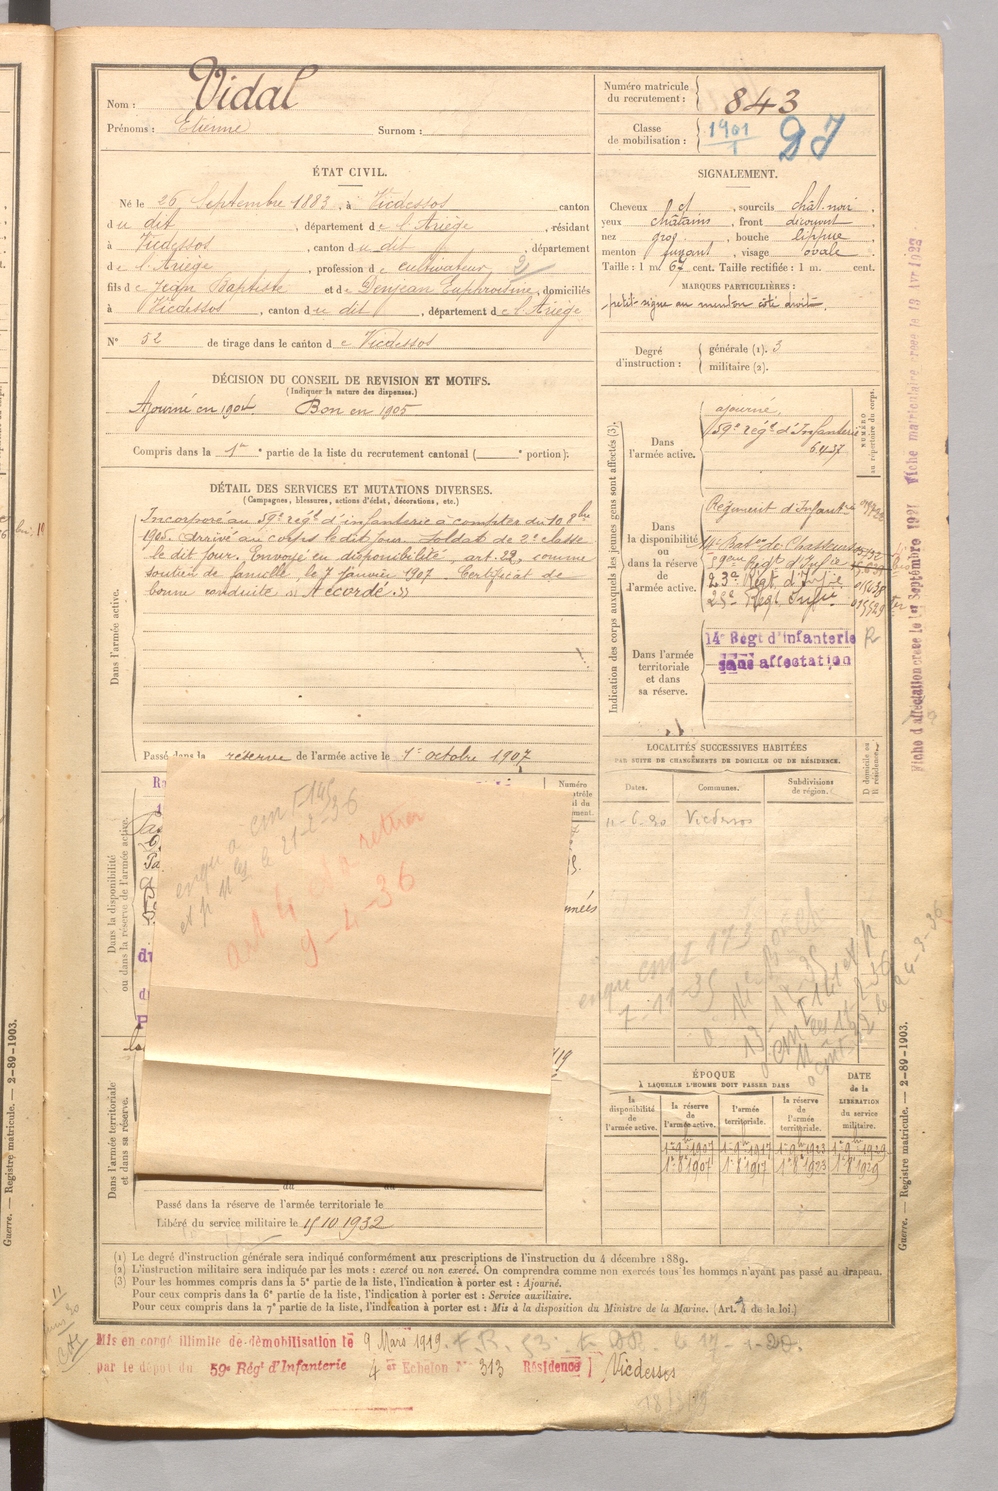 Nom : Vidal
Prénoms : Etienne Surnom :
ÉTAT CIVIL.
Né le 26 Septembre 1883, à Vicdessos canton
du dit, département de l'Ariège, résidant
à Vicdessos, canton du dit, département
de l'Ariège, profession de cultivateur 2
fils de Jean Baptiste et de Denjean Euphrosine, domiciliés
à Vicdessos, canton du dit, département de l'Ariège
N° 52 de tirage dans le canton de Vicdessos
DÉCISION DU CONSEIL DE REVISION ET MOTIFS.
(Indiquer la nature des dispenses.)
Ajourné en 1904. Bon en 1905
Compris dans la 1re partie de la liste du recrutement cantonal ( e portion).
DÉTAIL DES SERVICES ET MUTATIONS DIVERSES.
(Campagnes, blessures, actions d'éclat, décorations, etc.)
Dans l'armée active.
Incorporé au 59e régt d'infanterie à compter du 10 8bre
1905. Arrivé au corps le dit jour. Soldat de 2e classe
le dit jour. Envoyé en disponibilité, art. 22, comme
soutien de famille, le 7 janvier 1907 Certificat de
bonne conduite « Accordé »
Passé dans la réserve de l'armée active le 1er octobre 1907
Dans la disponibilité
ou dans la réserve de l'armée active.
Numéro
7-11-35
art 4 est à retirer
9-4-36
le 21-2-36
Dans l'armée territoriale
et dans sa réserve.
Passé dans la réserve de l'armée territoriale le
Libéré du service militaire le 15/10/1932
Numéro matricule
du recrutement : 843
Classe
de mobilisation : 1901
1
DJ
SIGNALEMENT.
Cheveux et, sourcils chât. noir,
yeux châtains, front découvert,
nez gros, bouche lippue,
menton fuyant, visage ovale
Taille : 1 m. 67 cent. Taille rectifiée : 1 m. cent.
MARQUES PARTICULIÈRES :
petit signe au menton côté droit.
Degré
d'instruction : générale (1). 3
militaire (2).
Indication des corps auxquels les jeunes gens sont affectés (3).
NUMÉRO
au répertoire du corps.
Dans
l'armée active.
ajourné,
59e Régt d'Infanterie
6437
Dans
la disponibilité
ou
dans la réserve
de
l'armée active.
Régiment d'Infantrie
Baton de Chasseurs
59ème Régt d'Infie
23e Régt d'Infie
25e Régt Infie
Dans l'armée
territoriale
et dans
sa réserve.
14e Régt d'infanterie
sans affectation
R
LOCALITÉS SUCCESSIVES HABITÉES
PAR SUITE DE CHANGEMENTS DE DOMICILE OU DE RÉSIDENCE.
Dates. Communes. Subdivisions
de région.
D domicile ou
R résidence.
11-6-20 Vicdessos
ÉPOQUE
À LAQUELLE L'HOMME DOIT PASSER DANS
DATE
de la
LIBÉRATION
du service
militaire.
la
disponibilité
de
l'armée active.
la réserve
de
l'armée active.
l'armée
territoriale.
la réserve
de
l'armée
territoriale.
1er 8bre 1907 1er 8bre 1917 1er 8bre 1923 1er 8bre 1929
Fiche d'affectation créée le 1er Septembre 1921 Fiche matriculaire créée le 18 Avr 1923
Guerre. — Registre matricule. — 2-89-1903.
(1) Le degré d'instruction générale sera indiqué conformément aux prescriptions de l'instruction du 4 décembre 1889.
(2) L'instruction militaire sera indiquée par les mots : exercé ou non exercé. On comprendra comme non exercés tous les hommes n'ayant pas passé au drapeau.
(3) Pour les hommes compris dans la 5e partie de la liste, l'indication à porter est : Ajourné.
Pour ceux compris dans la 6e partie de la liste, l'indication à porter est : Service auxiliaire.
Pour ceux compris dans la 7e partie de la liste, l'indication à porter est : Mis à la disposition du Ministre de la Marine. (Art. 4 de la loi.)
Mis en congé illimité de démobilisation le 9 Mars 1919.
par le dépôt du 59e Régt d'Infanterie 4e Echelon N° 313 Résidence Vicdessos
Guerre. — Registre matricule. — 2-89-1903.